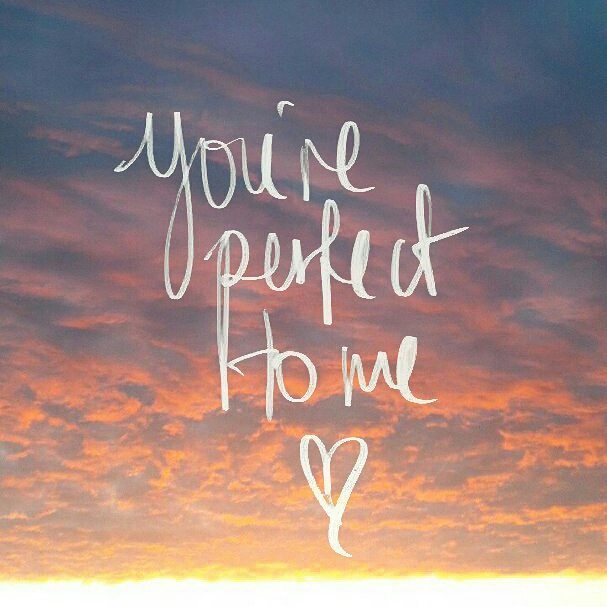 you're
perfect
to me